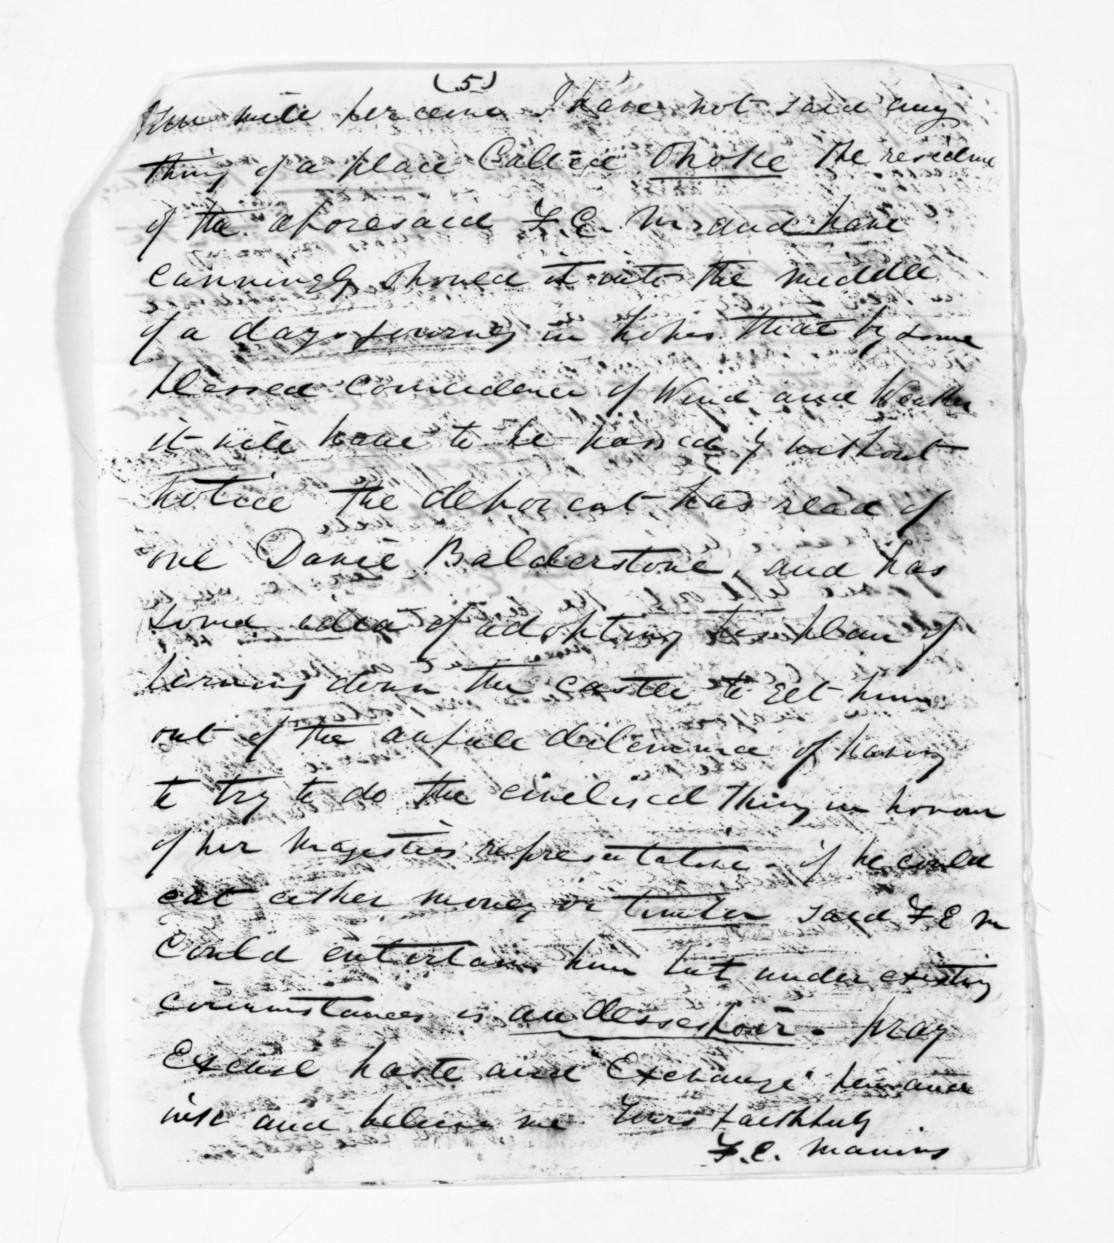 (5)
You will perceive I have not said any
thing of a place Called Onoke the residence
of the aforesaid F. E. M. and have
cunningly shoved it into the middle
of a days journey in hopes that by some
blessed coincidence of Wind and Weather
it will have to be passed by without
notice the deponent has read of
one Danie Balderstone, and has
some idea of adopting his plan of
burning down the castle to get him
out of the awfull dilemma of having
to try to do the civilised thing in honour
of her Majesties representative. if he could
eat either money or timber said F E M
could entertain him but under existing
circumstances is au dessespoir. pray
Excuse haste and Exchange pen and
ink and believe me Yours faithfully
F. E. Maning